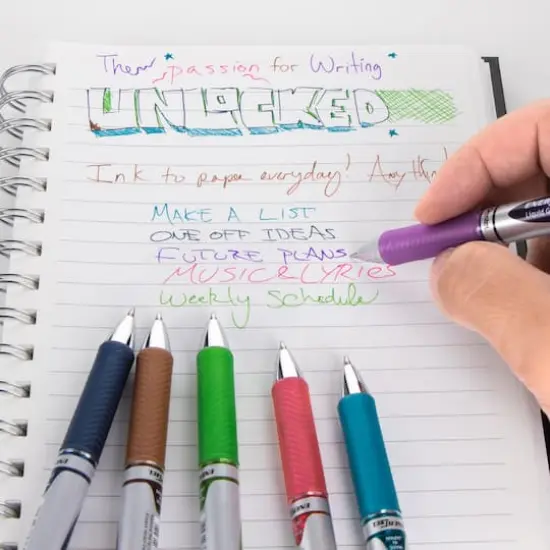 Then passion for Writing
UNLOCKED
Ink to paper everyday! Anythin
MAKE A LIST
ONE OFF IDEAS
FUTURE PLANS
MUSIC & LYRIES
Weekly Schedule